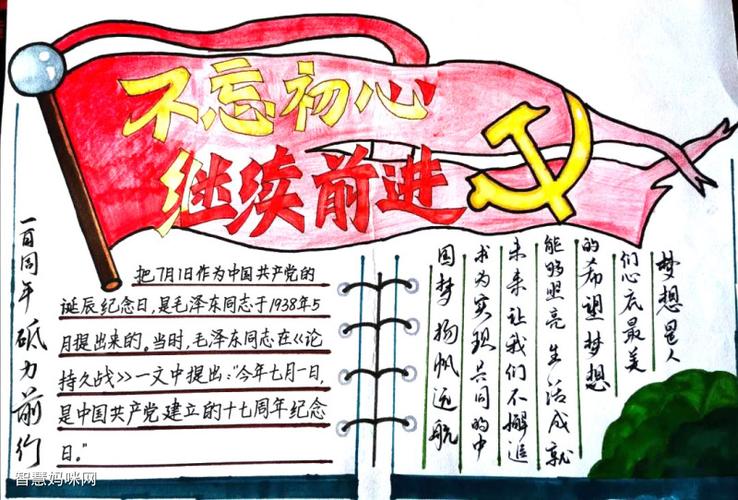 不忘初心
继续前进
一百周年砥力前行
把7月1日作为中国共产党的
诞辰纪念日,是毛泽东同志于1938年5
月提出来的。当时,毛泽东同志在《论
持久战》一文中提出:“今年七月一日,
是中国共产党建立的十七周年纪念
日。”
梦想是人
们心底最美
的希望梦想
能够照亮生活成就
未来让我们不懈追
求为实现共同的中
国梦扬帆远航
智慧妈咪网